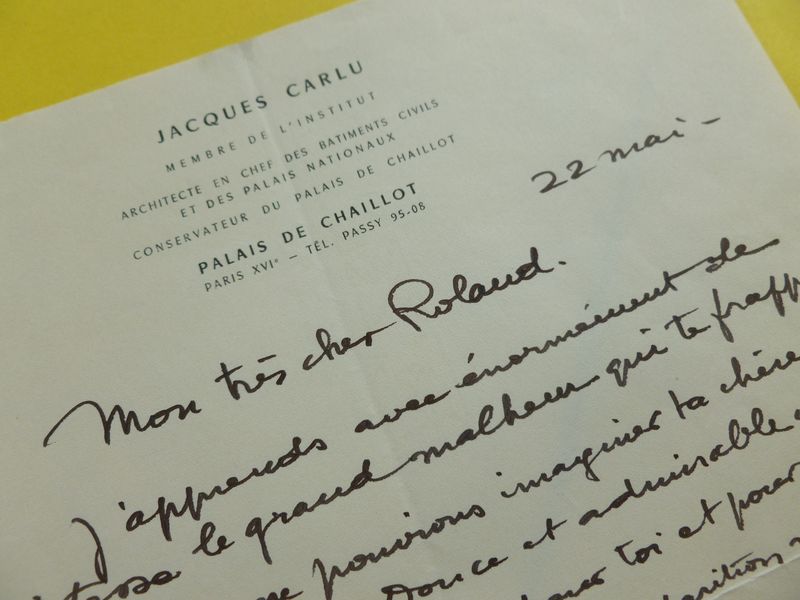 JACQUES CARLU
MEMBRE DE L'INSTITUT
ARCHITECTE EN CHEF DES BATIMENTS CIVILS
ET DES PALAIS NATIONAUX
CONSERVATEUR DU PALAIS DE CHAILLOT
PALAIS DE CHAILLOT
PARIS XVIe — TÉL. PASSY 95-08
22 mai -
Mon très cher Roland.
J'apprends avec énormément de
le grand malheur qui te frapp
pouvions imaginer ta chère
douce et admirable
toi et pour